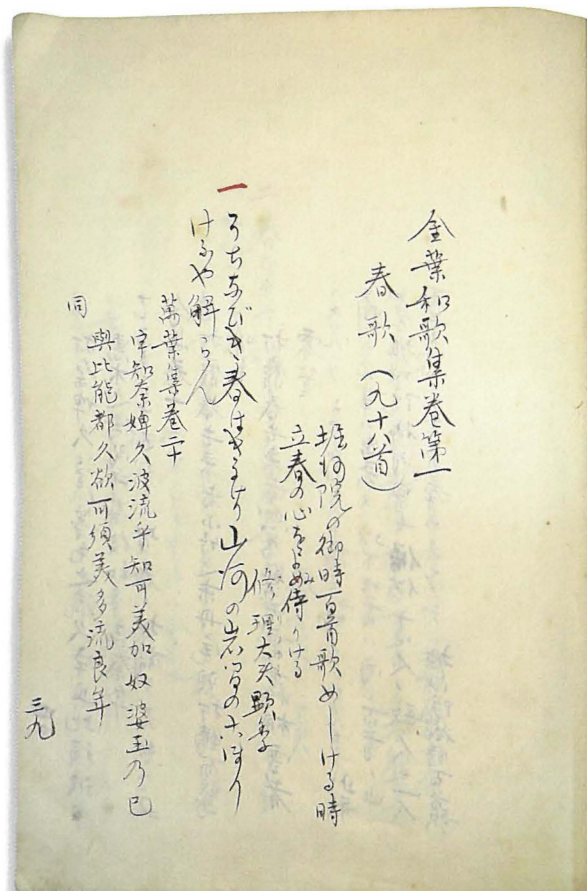 金葉和歌集巻第一
春歌(九十八首)
堀河院の御時百首歌めしける時
立春の心をよめ侍りける
修理大夫顕季
一
うちなびき春はきにけり山河の岩間のこほり
けふや解くらん
萬葉集巻二十
宇知奈婢久波流乎知可美加奴婆玉乃己
與比能都久欲可須美多流良牟
同
三九